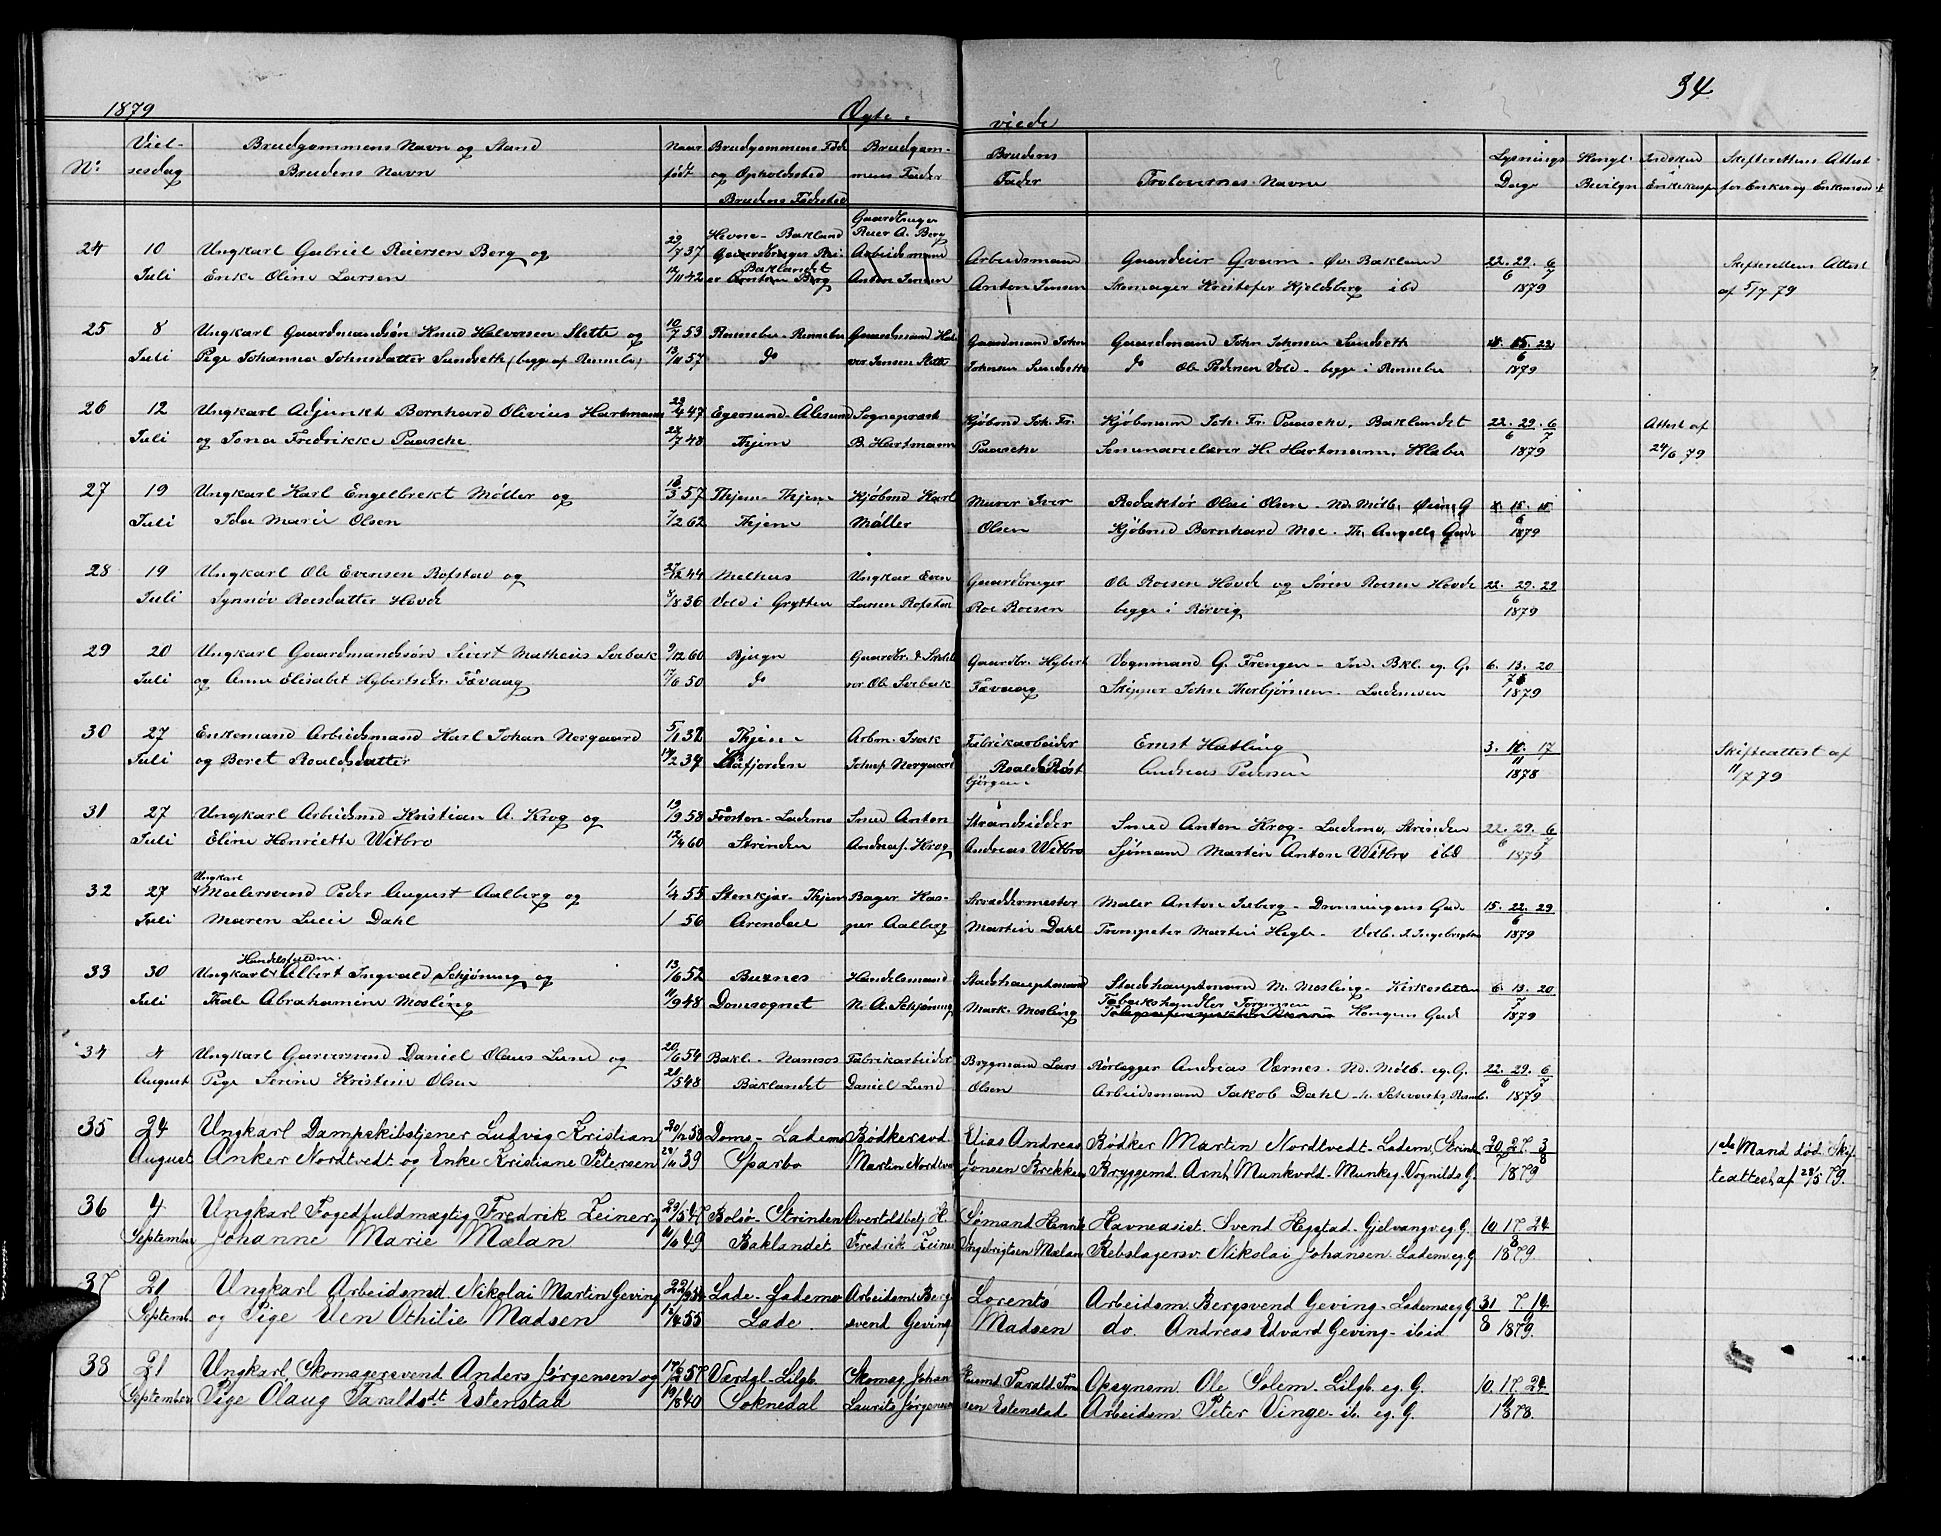 34
1879 Ægte- viede
No Viel- Brudgommens Navn og Stand Naar Brudgommens Føde Brudgom- Brudens Lysnings Kongl. Indskud Skifterettens Attest
sesdag Brudens Navn født og Opholdssted mens Fader Fader Trolovernes Navne Dage Bevilgn Enkekasse for Enker og Enkemænd
Brudens Fødested
Gaardbruger
24 10 Ungkarl Gabriel Reiersen Berg og 29/7 37 Hevne - Bakland Reier A. Berg Arbeidsmand Gaardeier Qvam - Øv. Bakland 22. 29. 6 Skifterettens Attest
Juli Enke Oline Larsen 12/11 42 Baklandet Anton Jensen Anton Jensen Skomager Kristofer Kjeldsberg ibd 6 7 1879 af 5/7 79
25 8 Ungkarl Gaardmandssøn Knud Halvorsen Slette og 10/7 53 Rennebu - Rennebu Gaardmand Hal- Gaardmand John Gaardmand John Johnsen Sundseth 8. 15. 22
Juli Pige Johanna Johnsdatter Sundseth (begge af Rennebu) 13/11 57 do vor Jensen Slette Johnsen Sundseth do Ole Pedersen Vold - begge i Rennebu 6 1879
26 12 Ungkarl Adjunkt Bernhard Olivius Hartmann 29/4 47 Egersund - Ålesund Sogneprest Kjøbmd Joh. Fr. Kjøbmann Joh. Fr. Paasche, Baklandet 22. 29. 6 Attest af
Juli og Jona Fredrikke Paasche 28/7 48 Thjem B. Hartmann Paasche Seminarielærer H. Hartmann, Klæbu 6 7 1879 24/6 79
27 19 Ungkarl Karl Engelbrekt Møller og 18/3 57 Thjem - Thjem Kjøbmd Karl Murer Iver Redaktør Olai Olsen - Nd. Mølb. Øiens G 8. 15. 15
Juli Ida Marie Olsen 7/2 62 Thjem Møller Olsen Kjøbmd Bernhard Moe - Th. Angells Gade 6 1879
28 19 Ungkarl Ole Evensen Rofstad og 27/12 44 Melhus Ungkar Even Gaardbruger Ole Roesen Hovde og Søren Roesen Hovde 22. 29. 29
Juli Synnøv Roesdatter Hovde 8/8 36 Vold i Grytten Larsen Rofstad Roe Roesen begge i Rørvig 6 1879
29 20 Ungkarl Gaardmandssøn Sivert Matheus Sæbak 9/12 60 Bjugn Gaardbr. Gaardbr. Hybert Vognmand G. Frengen - Ind. Bkl. eg. G. 6. 13. 20
Juli og Anne Elisabet Hybertsdr. Fævaag 17/6 50 do Ole Sæbak Fævaag Skipper John Thorbjørnsen - Lademoen 7 1879
30 27 Enkemand Arbeidsmand Karl Johan Norgaard 5/1 32 Thjem Arbm. Isak Fabrikarbeider Ernst Hatling 3. 10. 17 Skifteattest af
Juli og Beret Roaldsdatter 14/2 34 Aafjorden Norgaard Roald Andreas Pedersen 11 1878 11/7 79
31 27 Ungkarl Arbeidsmd Kristian A. Krog og 19/9 58 Frosten - Lademo Smed Anton Strandsidder Smed Anton Krog - Lademo, Strinden 22. 29. 6
Juli Eline Henriette Witbro 12/4 60 Strinden Andreas. Krog Andreas Witbro Sjømand Martin Anton Witbro ibd 6 7 1879
Ungkarl
32 27 Malersvend Peder August Aalberg og 1/4 55 Stenkjær - Thjem Bager Kas- Skræddermester Maler Anton Iseberg - Dronningens Gade 15. 22. 29
Juli Maren Lucie Dahl 1 56 Arendal per Aalberg Martin Dahl Trompeter Martin Hegle - Volb. 6 1879
Handelsfuldm.
33 30 Ungkarl Albert Ingvald Schjøning og 13/6 52 Buxnes Handelsmand Stadshauptmand Stadshauptmand M. Mosling - Kirkesletten 6. 13. 20
Juli Thale Abrahamine Mosling 11/9 48 Domsognet N. A. Schjøning Mark. Mosling Tobakshandler Jørgensen Kongens Gade 7 1879
34 4 Ungkarl Garversvend Daniel Olaus Lund og 20/6 54 Bakl. - Namsos Fabrikarbeider Brygmand Lars Rørlægger Andreas Værnes - Nd. Mølb. eg. G. 22. 29. 6
August Pige Serine Kristine Olsen 20/5 48 Baklandet Daniel Lund Olsen Arbeidsmand Jakob Dahl 6 7 1879
35 24 Ungkarl Dampskibstjener Ludvig Kristian 20/12 53 Doms - Lademo Bødkersvd. Elias Andreas Bødker Martin Nordtvedt - Ladem, Strind 20. 27. 3 1ste Mand død. Skif-
August Anker Nordtvedt og Enke Kristiane Petersen 28/11 39 Sparbo Martin Nordtvedt Jonsen Brekken Bryggemd. Arnt Munkvold - Munkeg. Vognilds G. 7 8 1879 teattest af 28/5 79.
36 4 Ungkarl Fogedfuldmægtig Fredrik Zeiner og 23/5 47 Bolsø - Strinden H. Sømand Havneasist. Svend Hegstad - Gjelvangv. eg. G. 10. 17. 24
September Johanne Marie Mælan 11/6 49 Baklandet Fredrik Zeiner Ingebrigtsen Mælan Rebslagersv. Nikolai Johansen - Ladem eg. G. 8 1879.
37 21 Ungkarl Arbeidsmd. Nikolai Martin Geving 22/9 54 Lade - Lademo Arbeidsm. Berg- Lorents Arbeidsm. Bergsvend Geving - Ladem. eg G 31 7. 14
Septemb. og Pige Elen Othilie Madsen 15/4 55 Lade svend Geving Madsen do. Andreas Edvard Geving - ibid 8 9 1879.
38 21 Ungkarl, Skomagersvend Anders Jørgensen og 17/2 57 Værdal - Lilgb. Skomag. Johan Huusmd. Tarald Opsynsm. Ole Solem - Lilgb. eg. G. 10. 17. 24
September Pige Olaug Taraldsdt. Estenstad 19/8 40 Soknedal Laurits Jørgensen sen Estenstad Arbeidsm. Peter Vinge - ib. eg. G. 1878.